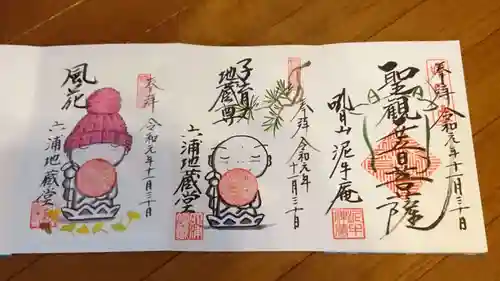 奉拝
令和元年十一月三十日
聖観世音菩薩
吼山 泥牛庵
奉拝
令和元年
十一月三十日
子育
地蔵尊
六浦地蔵堂
奉拝
令和元年十一月三十日
風花
六浦地蔵堂